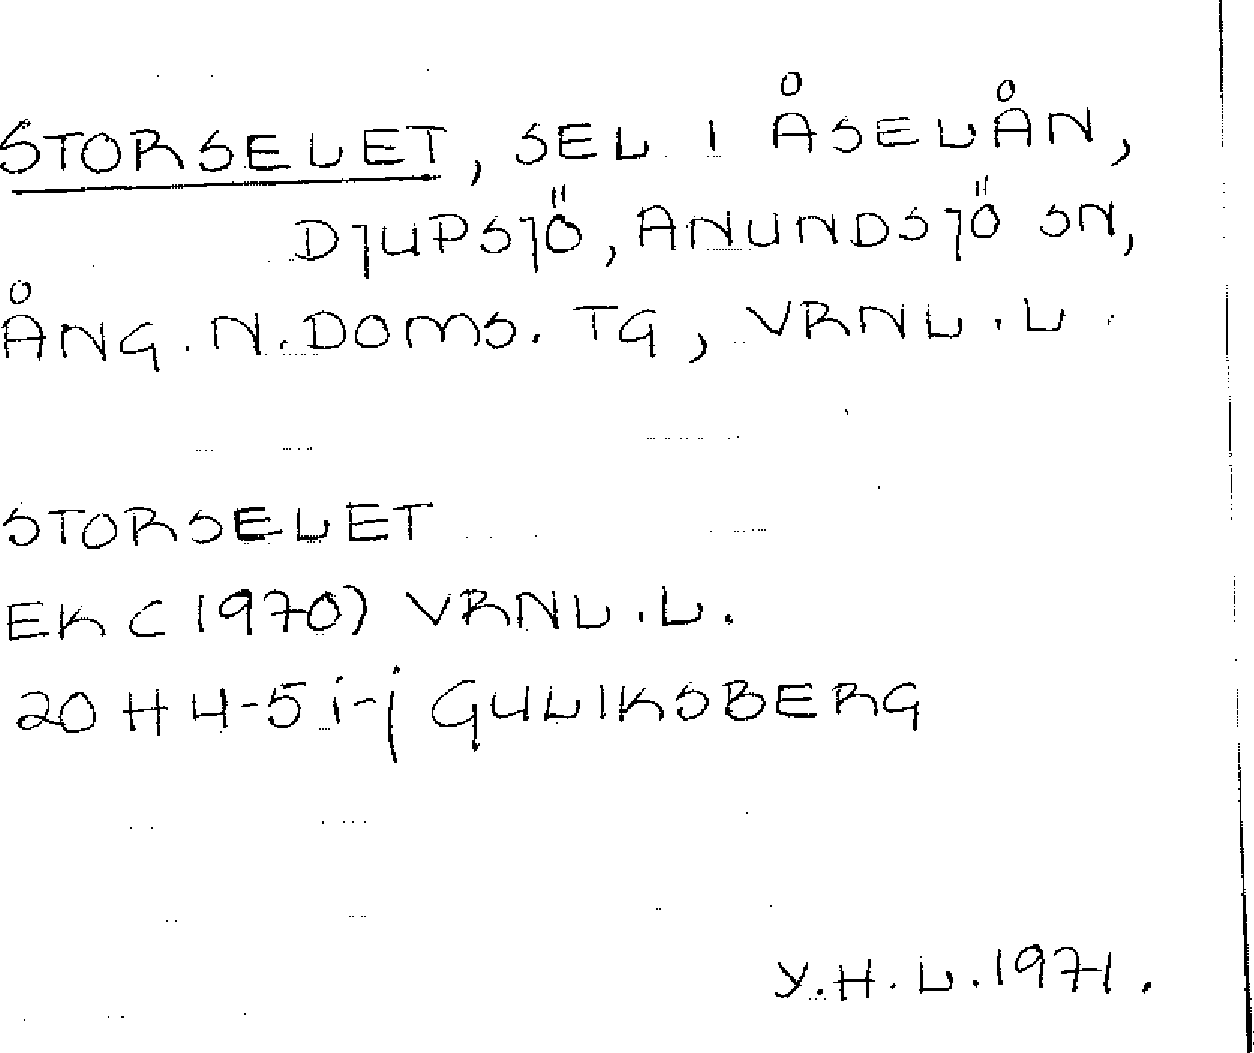 STORSELET, SEL I ÅSELÅN,
DJUPSJÖ, ANUNDSJÖ SN,
ÅNG. N. DOMS. TG, VRNL. L.
STORSELET
EK (1970) VRNL. L.
20 H 4-5 i-j GULIKSBERG
Y. H. L. 1971.